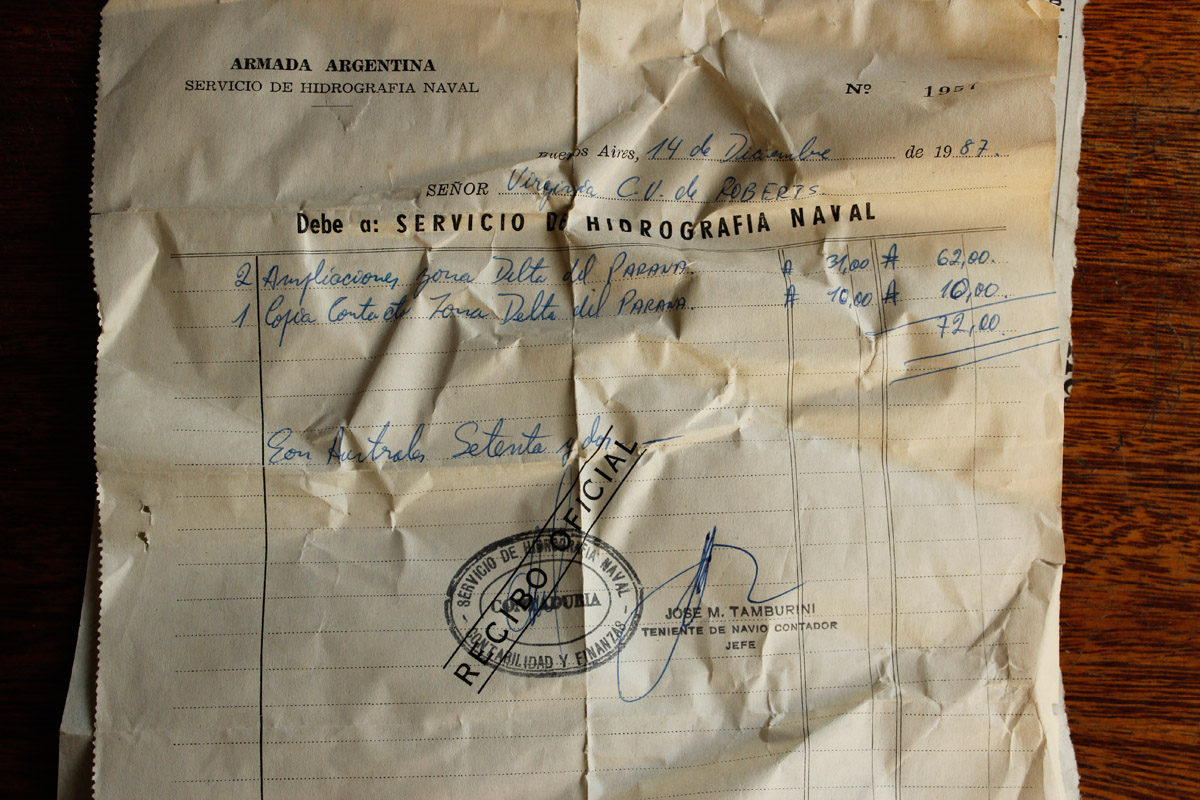 ARMADA ARGENTINA
SERVICIO DE HIDROGRAFIA NAVAL
Nº 1957
Buenos Aires, 14 de Diciembre de 1987.
SEÑOR Virginia C.V. de ROBERTS.
Debe a: SERVICIO DE HIDROGRAFIA NAVAL
2 Ampliaciones zona Delta del PARANA. ₳ 31,00 ₳ 62,00.
1 Copia Contacto Zona Delta del PARANA. ₳ 10,00 ₳ 10,00.
72,00
Son Australes Setenta y dos —
RECIBO OFICIAL
SERVICIO DE HIDROGRAFIA NAVAL
CONTADURIA
CONTABILIDAD Y FINANZAS
JOSE M. TAMBURINI
TENIENTE DE NAVIO CONTADOR
JEFE